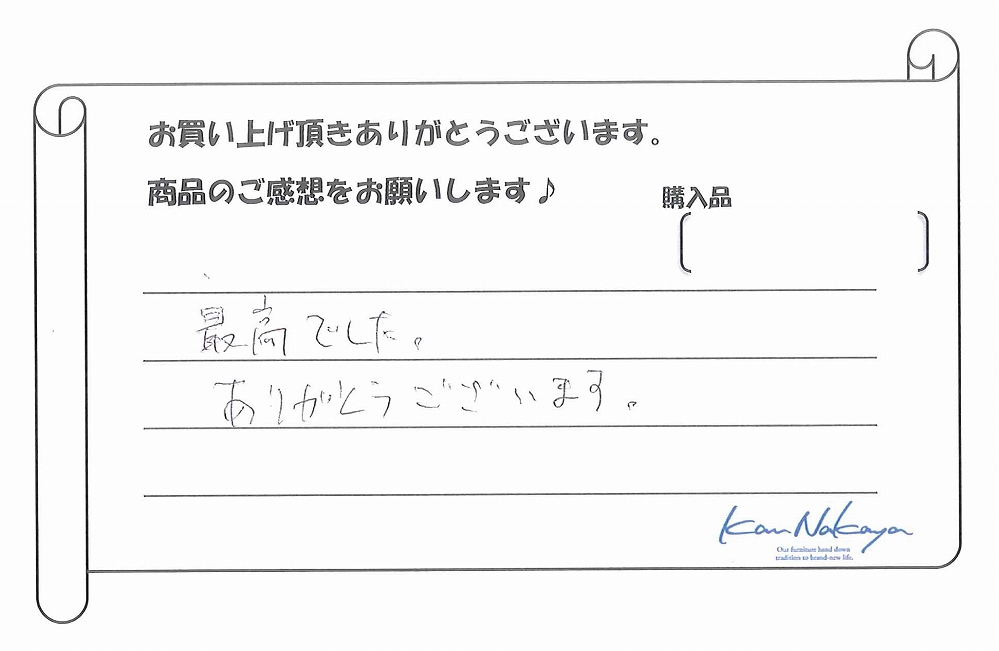 お買い上げ頂きありがとうございます。
商品のご感想をお願いします♪
購入品
最高でした。
ありがとうございます。
Kan Nakaya
Our furniture hand down
tradition to brand-new life.